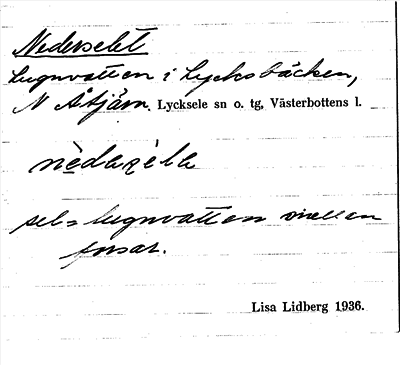 Nederselet
lugnvatten i Lycksbäcken,
N Åtjärn. Lycksele sn o. tg, Västerbottens l.
nèdaṛèla
sel = lugnvatten mellan
forsar.
Lisa Lidberg 1936.